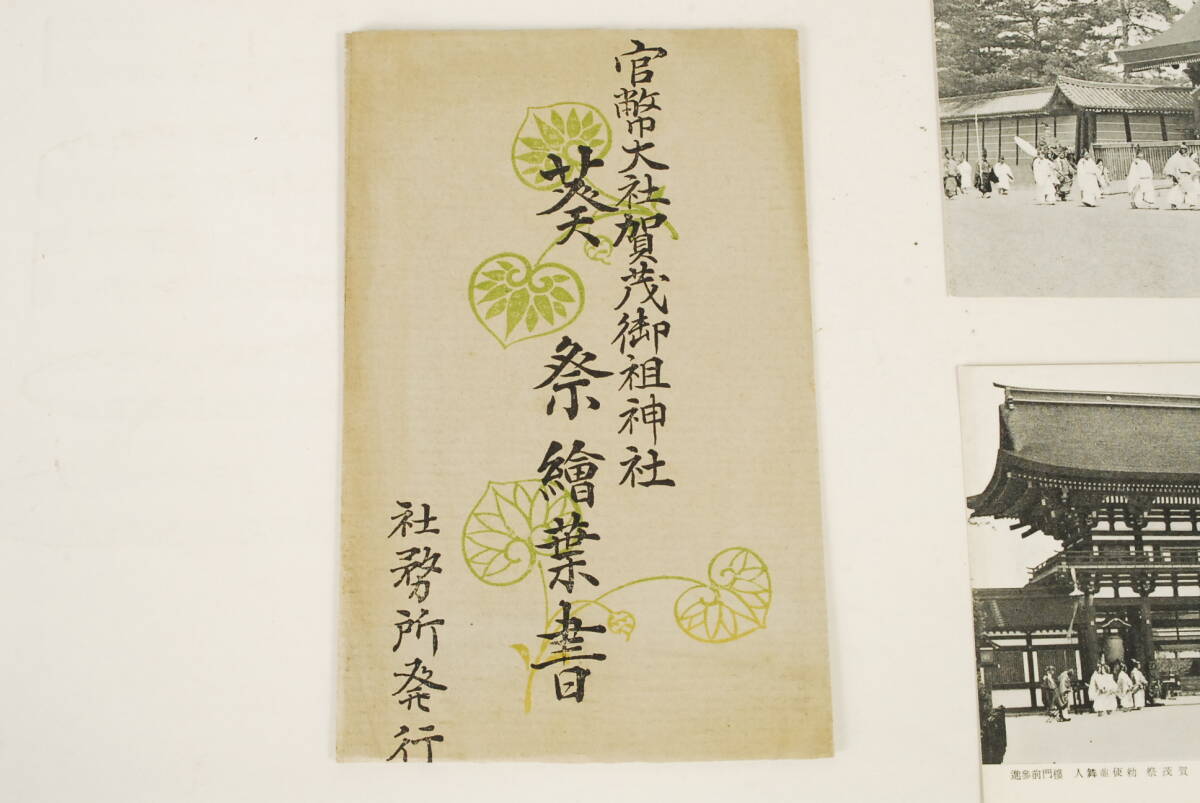 官幣大社賀茂御祖神社
葵祭繪葉書
社務所発行
賀茂祭 勅使並舞人 樓門前參進